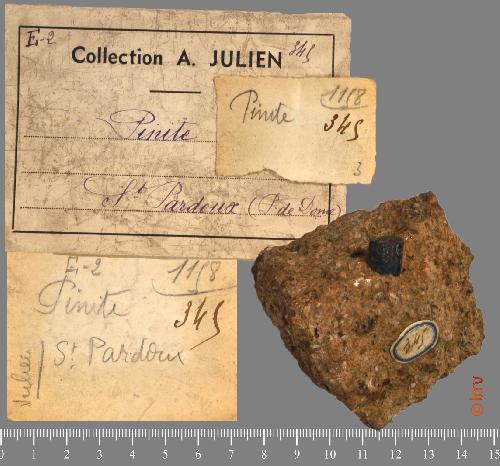 E-2
Collection A. JULIEN 345
Pinite
St Pardoux (P. de Dome)
Pinite
1158
345
3
E-2
1158
Pinite
345
St Pardoux
Julien
345
0 1 2 3 4 5 6 7 8 9 10 11 12 13 14 15